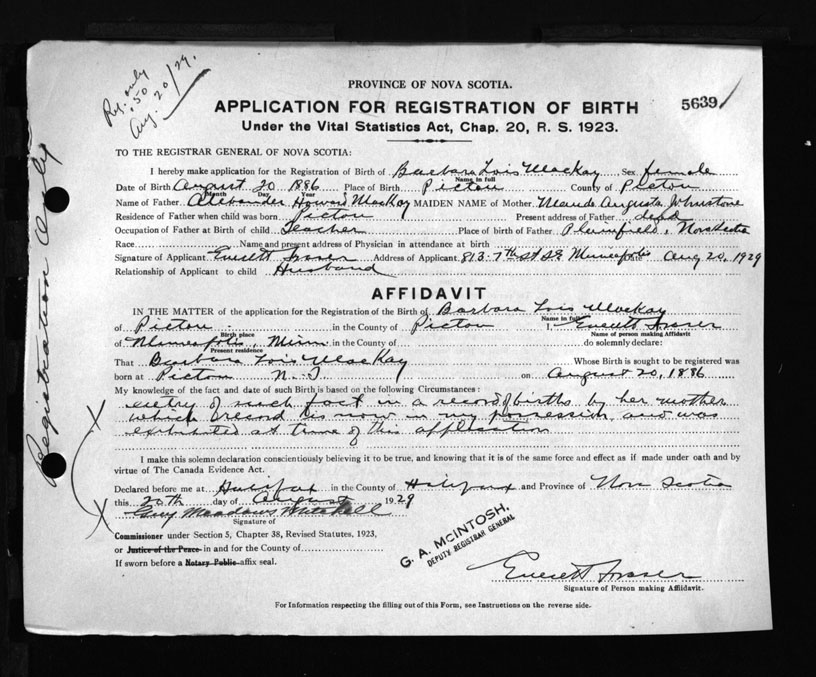 Reg. only
.50
Aug. 20/29.
Registration Only
PROVINCE OF NOVA SCOTIA.
5639
APPLICATION FOR REGISTRATION OF BIRTH
Under the Vital Statistics Act, Chap. 20, R. S. 1923.
TO THE REGISTRAR GENERAL OF NOVA SCOTIA:
I hereby make application for the Registration of Birth of Barbara Lois MacKay Sex female
Name in full
Date of Birth August 20 1886 Place of Birth Pictou County of Pictou
Month Day Year
Name of Father Alexander Howard MacKay MAIDEN NAME of Mother Maude Augusta Johnstone
Residence of Father when child was born Pictou Present address of Father dead
Occupation of Father at Birth of child Teacher Place of birth of Father Plainfield, Nova Scotia
Race Name and present address of Physician in attendance at birth
Signature of Applicant Everett Fraser Address of Applicant 813-7th St SE Minneapolis Aug 20, 1929
Relationship of Applicant to child Husband
AFFIDAVIT
IN THE MATTER of the application for the Registration of the Birth of Barbara Lois MacKay
Name in full
of Pictou in the County of Pictou I, Everett Fraser
Birth place Name of person making Affidavit
of Minneapolis, Minn in the County of do solemnly declare:
Present residence
That Barbara Lois MacKay Whose Birth is sought to be registered was
born at Pictou N.S. on August 20, 1886
My knowledge of the fact and date of such Birth is based on the following Circumstances:
entry of such fact in a record of births by her mother
which record is now in my possession and was
exhibited at time of this application
I make this solemn declaration conscientiously believing it to be true, and knowing that it is of the same force and effect as if made under oath and by
virtue of The Canada Evidence Act.
Declared before me at Halifax in the County of Halifax and Province of Nova Scotia
this 20th day of August 1929
Guy Meadows Mitchell
Signature of
Commissioner under Section 5, Chapter 38, Revised Statutes, 1923,
or Justice of the Peace in and for the County of
If sworn before a Notary Public affix seal.
G. A. McINTOSH,
DEPUTY REGISTRAR GENERAL
Everett Fraser
Signature of Person making Affidavit.
For Information respecting the filling out of this Form, see Instructions on the reverse side.